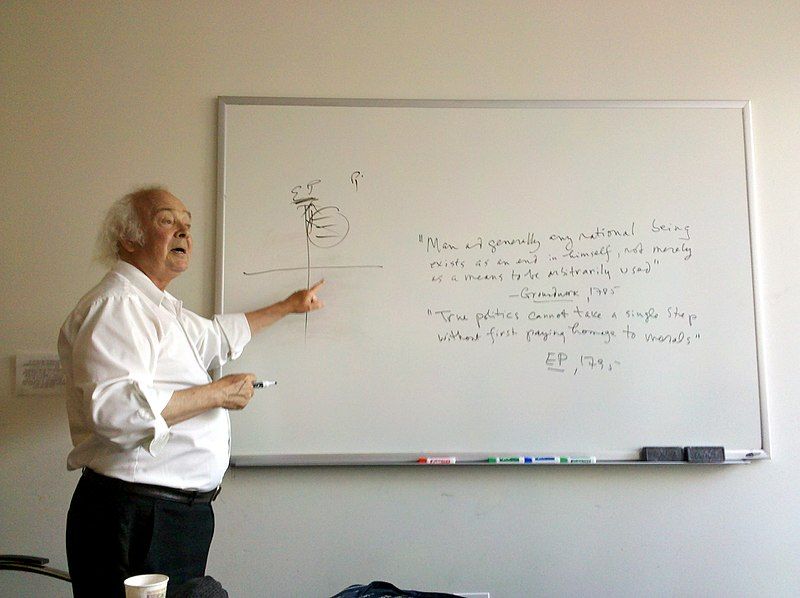 "Man and generally any rational being
exists as an end in himself, not merely
as a means to be arbitrarily used"
—Groundwork, 1785
"True politics cannot take a single step
without first paying homage to morals"
EP, 1795